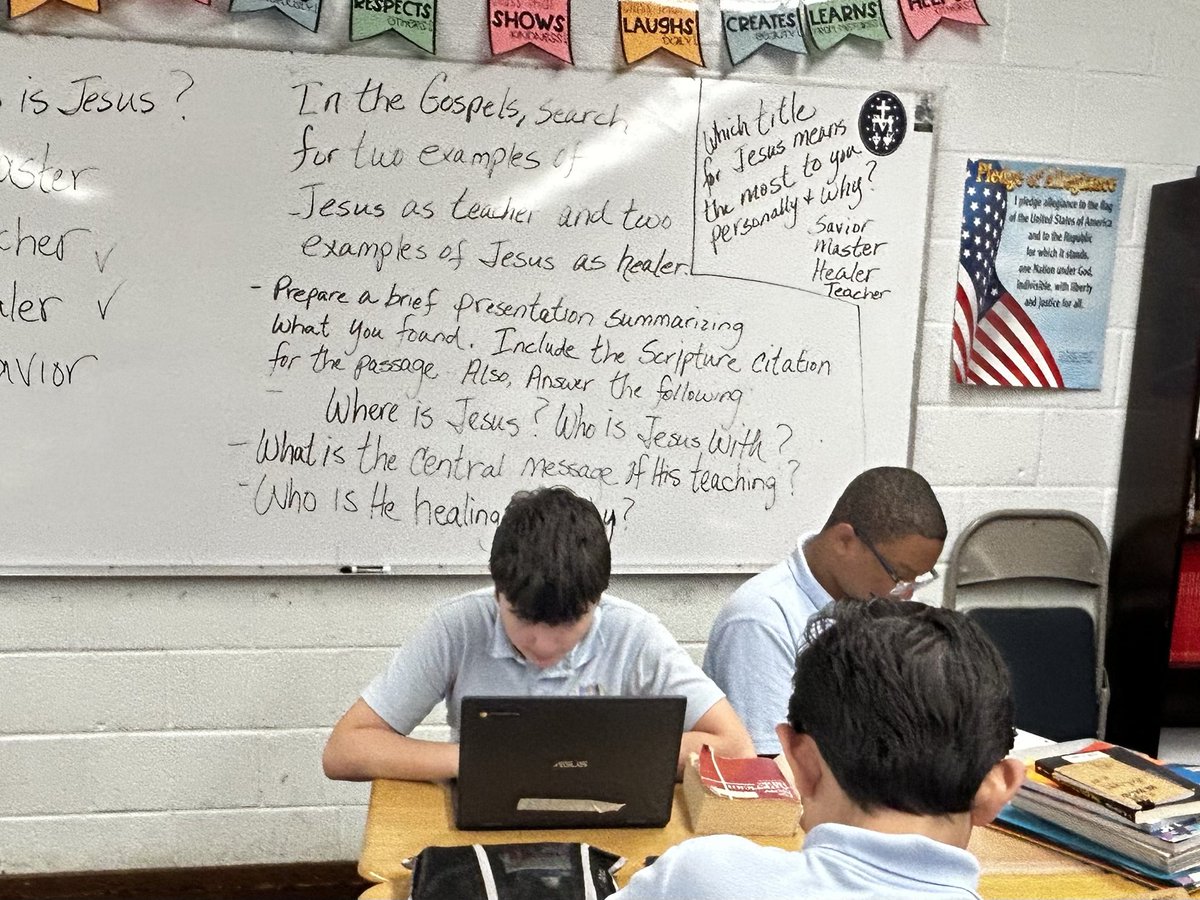 RESPECTS
OTHERS
SHOWS
KINDNESS
LAUGHS
DAILY
CREATES
BEAUTY
LEARNS
FROM MISTAKES
is Jesus ?
✓
✓
In the Gospels, search
for two examples of
Jesus as teacher and two
examples of Jesus as healer.
- Prepare a brief presentation summarizing
what you found. Include the Scripture citation
for the passage. Also, Answer the following
Where is Jesus? Who is Jesus with?
- What is the central message of His teaching?
- Who is He healing
Which title
for Jesus means
the most to you
personally + why?
Savior
Master
Healer
Teacher
Pledge of Allegiance
I pledge allegiance to the flag
of the United States of America
and to the Republic
for which it stands,
one Nation under God,
indivisible, with liberty
and justice for all.
ASUS